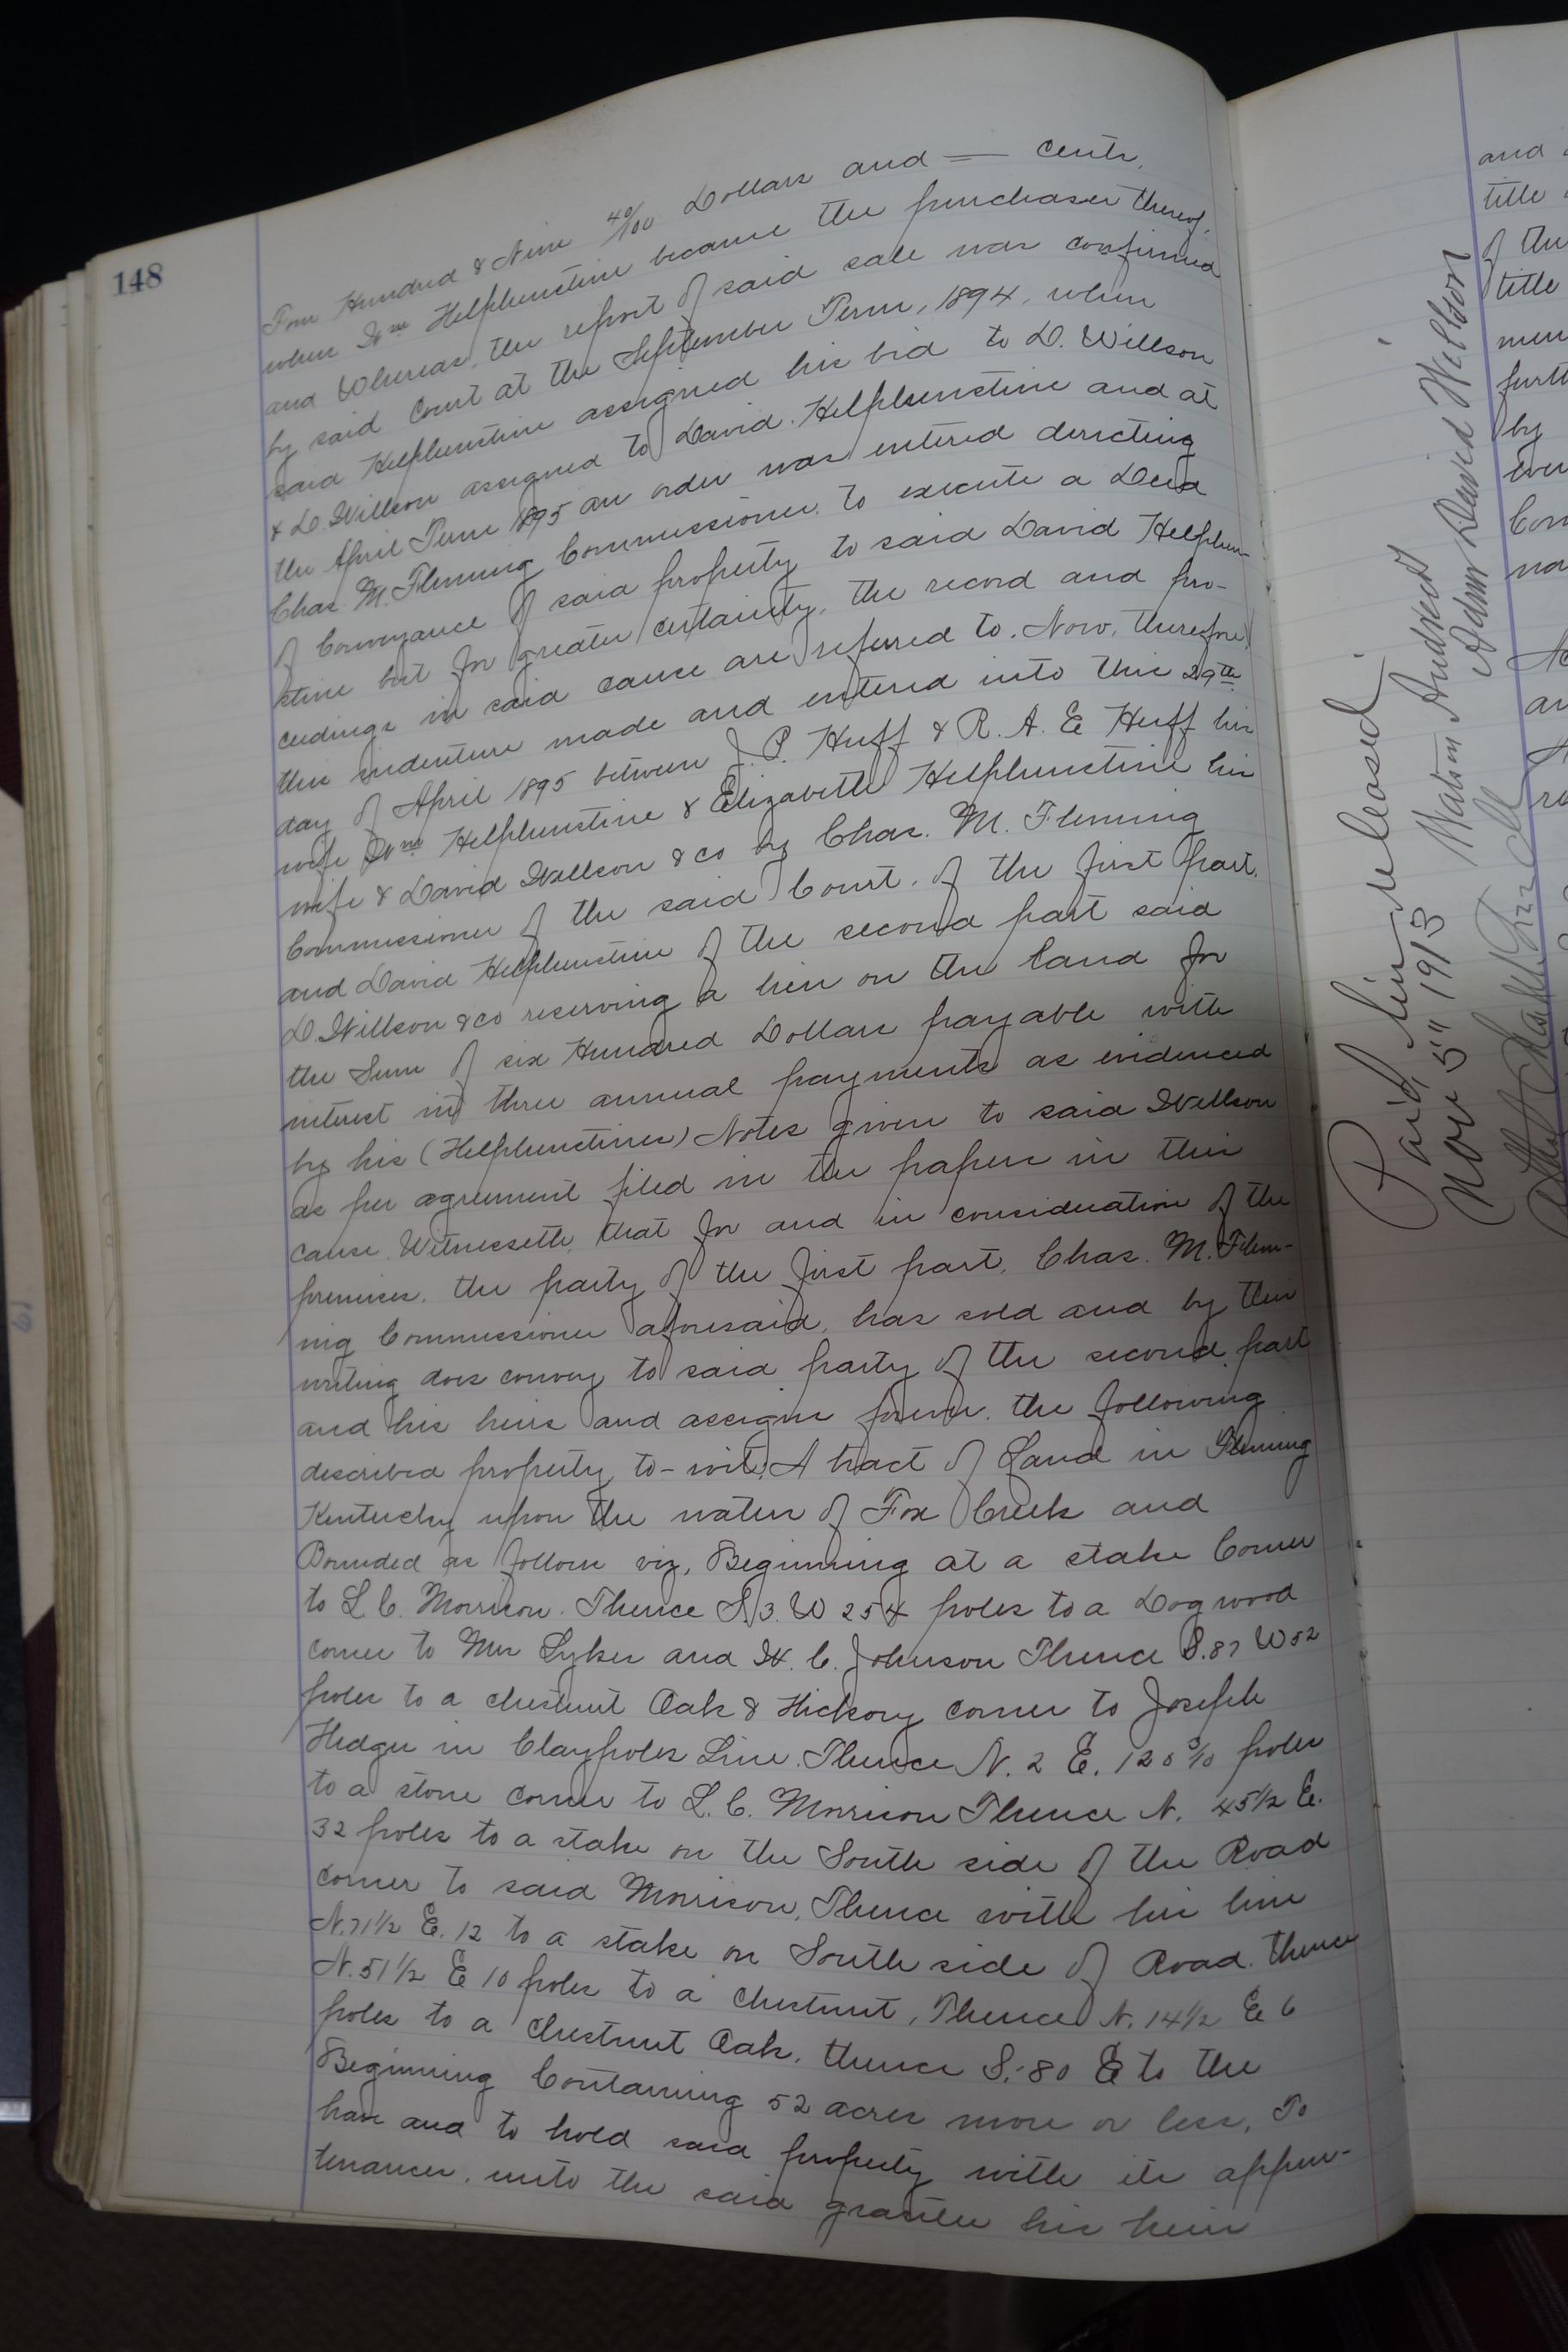 148
Four Hundred & Nine 40/100 Dollars and = Cents,
when Wm Helphenstine became the purchaser thereof,
and Whereas, the report of said sale was confirmed
by said Court at the September Term, 1894, when
said Helphenstine assigned his bid to D. Willson
& D Willson assigned to David Helphenstine and at
the April Term 1895 an order was entered directing
Chas M. Fleming Commissioner, to execute a Deed
of Conveyance of said property to said David Helphen-
stine but for greater certainty, the record and pro-
ceedings in said cause are referred to. Now, therefore
this indenture made and entered into this 29th
day of April 1895 between J. P. Huff & R. A. E Huff his
wife Wm Helphenstine & Elizabeth Helphenstine his
wife & David Willson & co by Chas. M. Fleming
Commissioner of the said Court, of the first part,
and David Helphenstine of the second part said
D. Willson & co reserving a lien on the land for
the Sum of six Hundred Dollars payable with
interest in three annual payments as evidenced
by his (Helphenstines) Notes given to said Willson
as per agreement filed in the papers in this
cause Witnesseth, that for and in consideration of the
premises, the party of the first part, Chas. M. Flem-
ing Commissioner aforesaid, has sold and by this
writing does convey to said party of the second part
and his heirs and assigns forever, the following
described property to-wit, A tract of Land in Fleming
Kentucky upon the waters of Fox Creek and
Bounded as follows viz, Beginning at a stake Corner
to L. C. Morrison. Thence S. 3. W 254 poles to a Dogwood
corner to Mrs Sykes and W. C. Johnson Thence S. 87 W 52
poles to a chestnut Oak & Hickory corner to Joseph
Hedges in Claypoles Line. Thence N. 2 E. 120 5/10 poles
to a stone corner to L. C. Morrison Thence N. 45 1/2 E.
32 poles to a stake on the South side of the Road
corner to said Morrison, Thence with his line
N. 71 1/2 E. 12 to a stake on South side of Road. thence
N. 51 1/2 E 10 poles to a chestnut, Thence N. 14 1/2 E 6
poles to a chestnut Oak, thence S. 80 E to the
Beginning Containing 52 acres more or less, To
have and to hold said property with its appur-
tenances, unto the said grantee his heirs
Paid, lien released
Nov 5" 1913 Watson Andrews
Admr David Willson
and
title
of the
title
men
furth
by
ever
Com